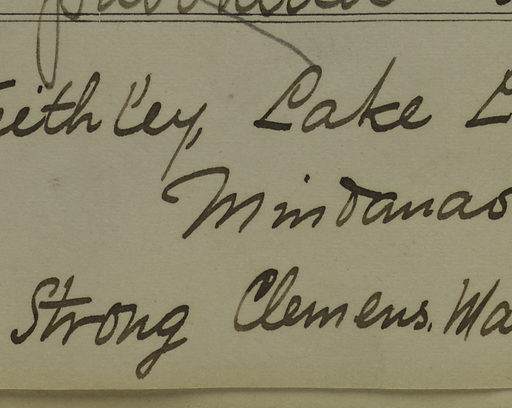 eithley, Lake L
Mindanao
Strong Clemens. Ma